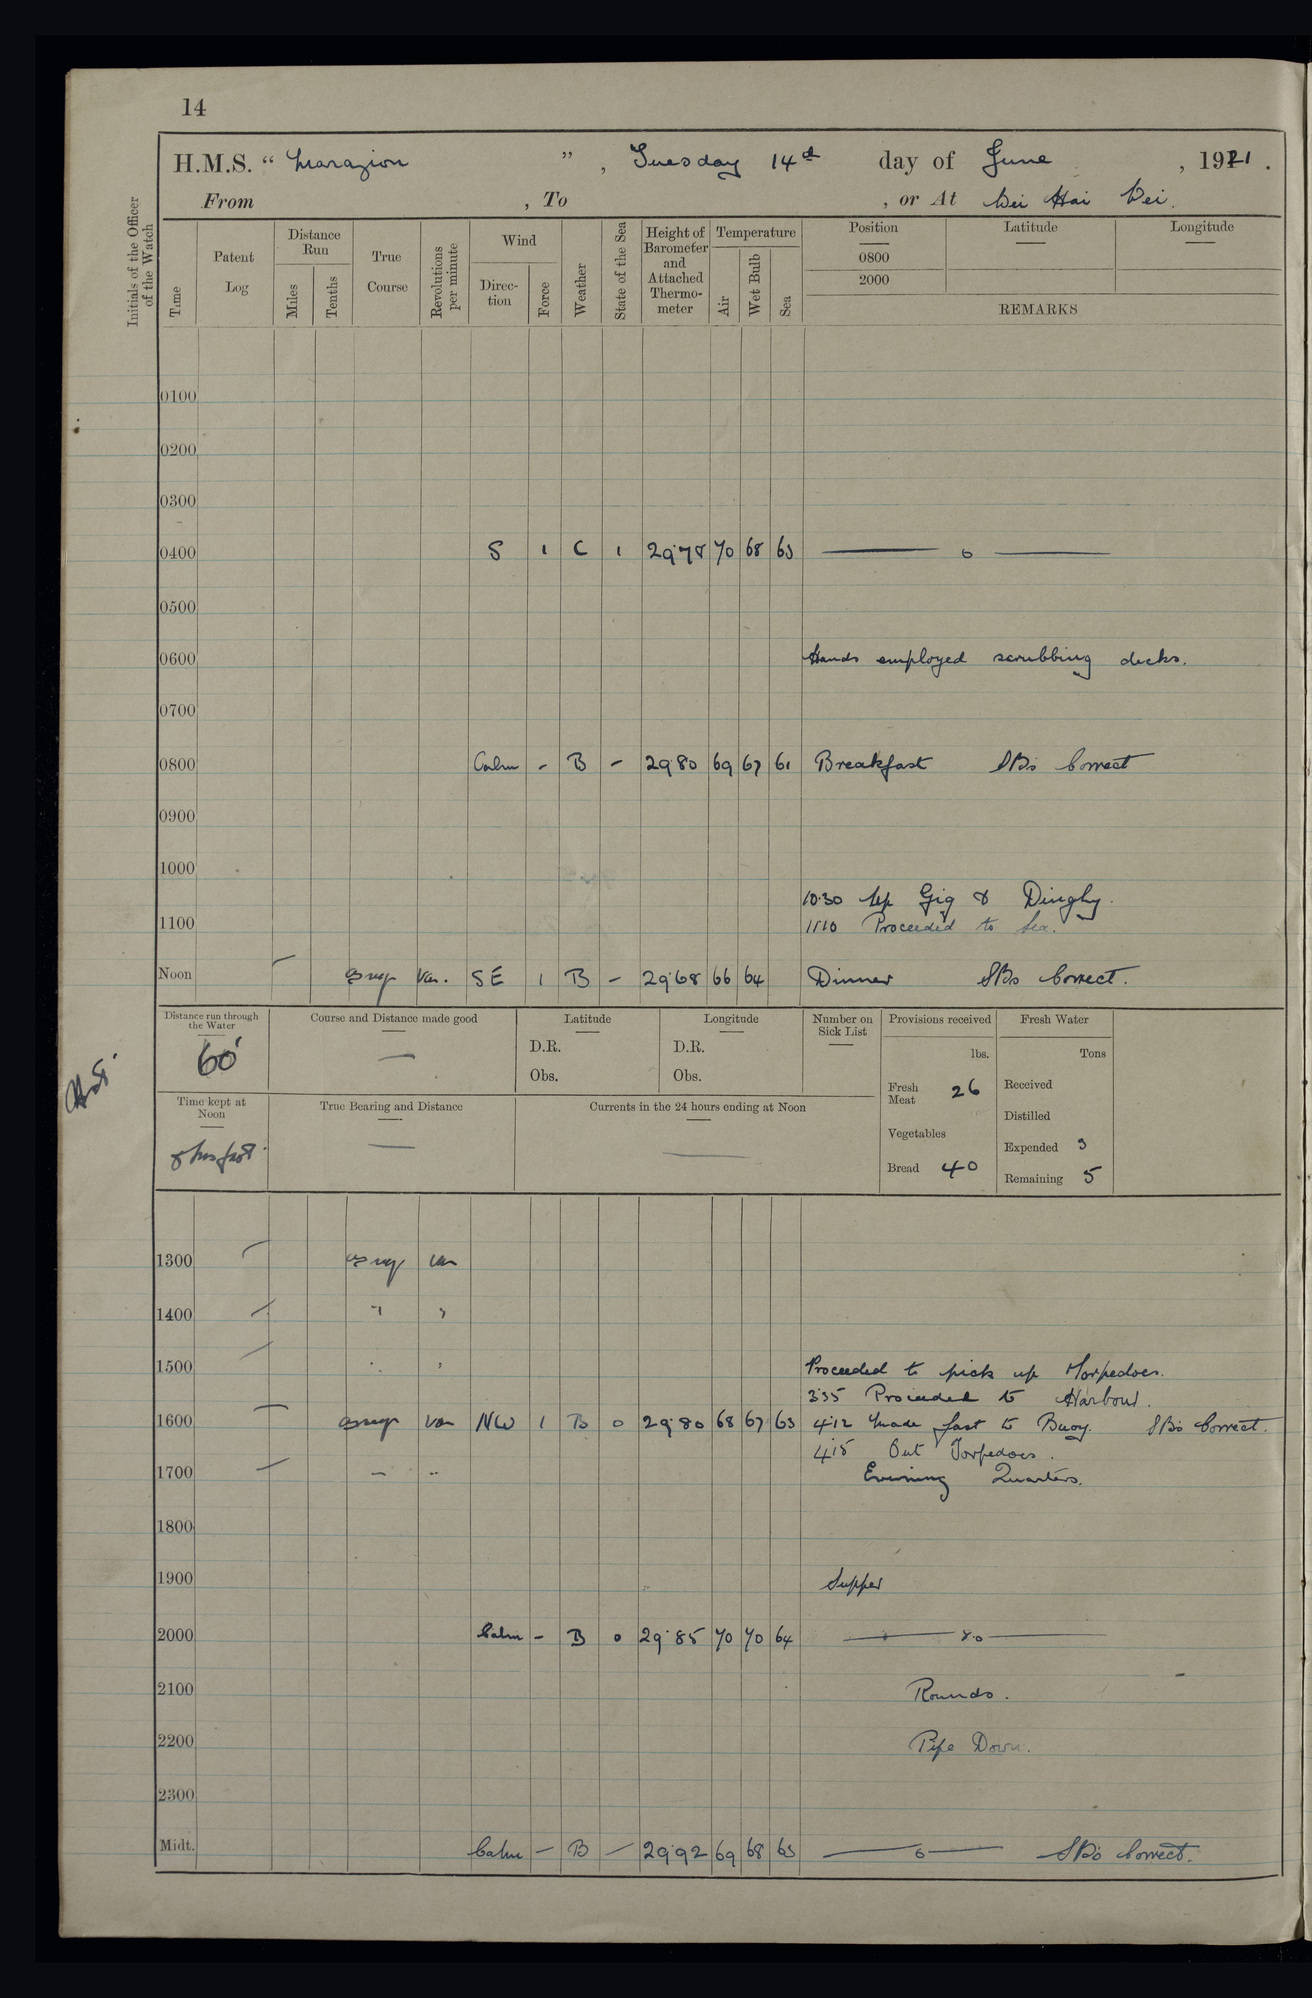 14
H.M.S. "Marazion", Tuesday 14th day of June, 1921.
From , To , or At Wei Hai Wei.
Initials of the Officer of the Watch
Time
Patent Log
Distance Run
Miles
Tenths
True Course
Revolutions per minute
Wind
Direction
Force
Weather
State of the Sea
Height of Barometer and Attached Thermometer
Temperature
Air
Wet Bulb
Sea
Position
0800
2000
Latitude
Longitude
REMARKS
0100
0200
0300
0400 S 1 C 1 29.78 70 68 63 — 0 —
0500
0600 Hands employed scrubbing decks.
0700
0800 Calm - B - 29.80 69 67 61 Breakfast SBs Correct
0900
1000
10.30 Up Gig & Dinghy.
1100 1110 Proceeded to Sea.
Noon Var. SE 1 B - 29.68 66 64 Dinner SBs Correct.
Distance run through the Water
60'
Course and Distance made good
—
Latitude
D.R.
Obs.
Longitude
D.R.
Obs.
Number on Sick List
Provisions received
lbs.
Fresh Meat 26
Vegetables
Bread 40
Fresh Water
Tons
Received
Distilled
Expended 3
Remaining 5
Time kept at Noon
8 hrs fast.
True Bearing and Distance
—
Currents in the 24 hours ending at Noon
—
1300 var
1400 " "
1500 Proceeded to pick up Torpedoes.
3.35 Proceeded to Harbour.
1600 var NW 1 B 0 29.80 68 67 63 4.12 Made fast to Buoy. SBs Correct.
4.15 Out Torpedoes.
1700 Evening Quarters.
1800
1900 Supper
2000 Calm - B 0 29.85 70 70 64 — 8.0 —
2100 Rounds.
2200 Pipe Down.
2300
Midt. Calm - B - 29.92 69 68 63 — 0 — SBs Correct.